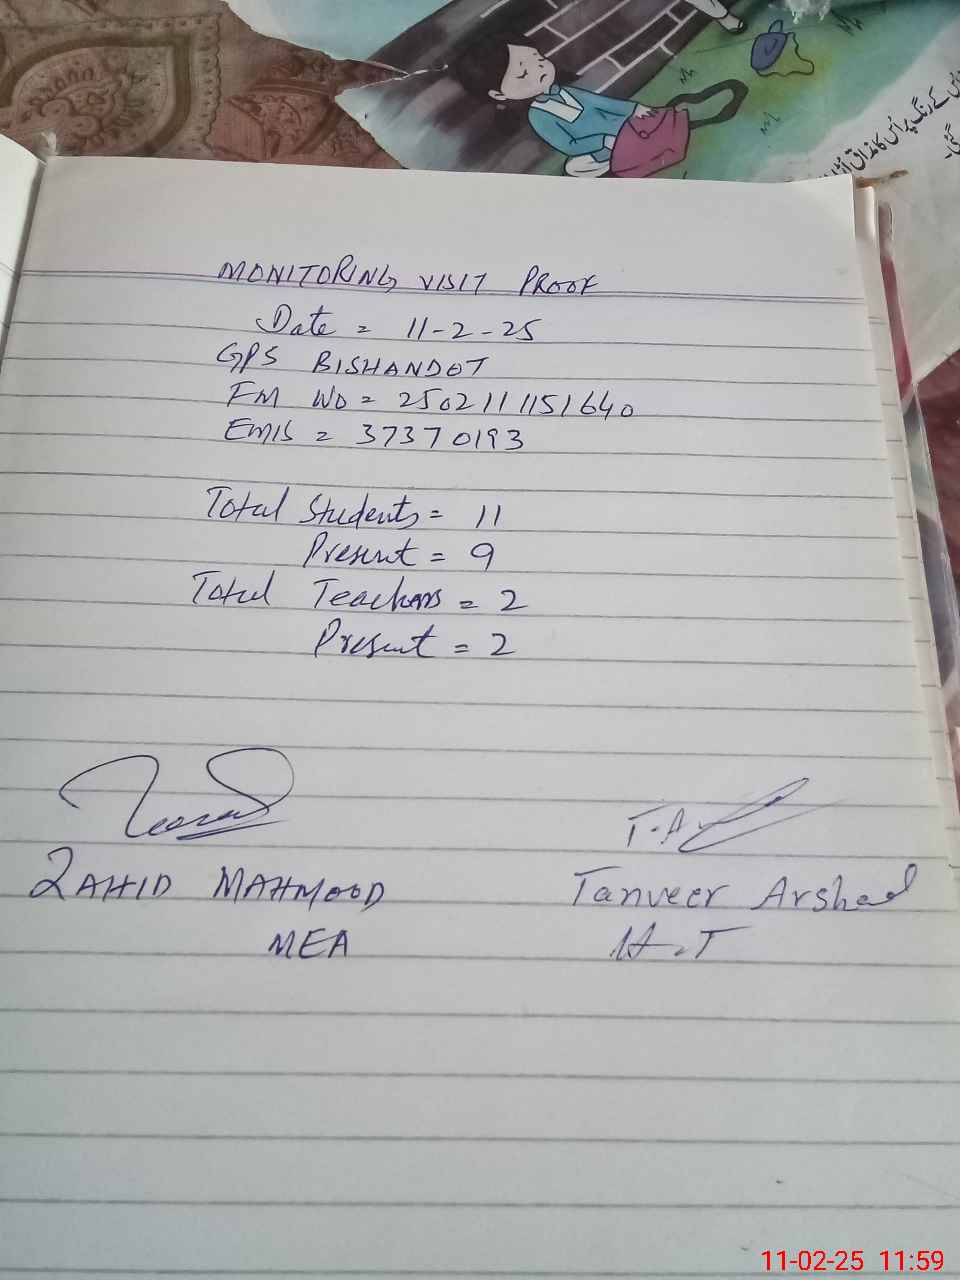 MONITORING VISIT PROOF
Date = 11-2-25
GPS BISHANDOT
FM NO = 2502111151640
EMIS = 37370193
Total Students = 11
Present = 9
Total Teachers = 2
Present = 2
T-A
ZAHID MAHMOOD
Tanveer Arshad
MEA
H.T
11-02-25 11:59